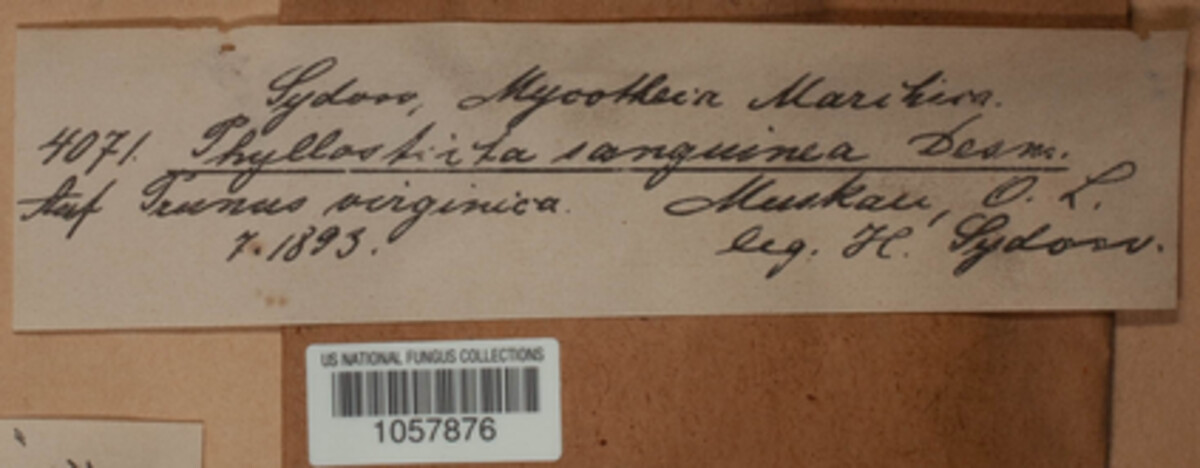 Sydow, Mycotheca Marchica.
4071. Phyllosticta sanguinea Desm.
Auf Prunus virginica. Muskau, O. L.
7. 1893. leg. H. Sydow.
US NATIONAL FUNGUS COLLECTIONS
1057876